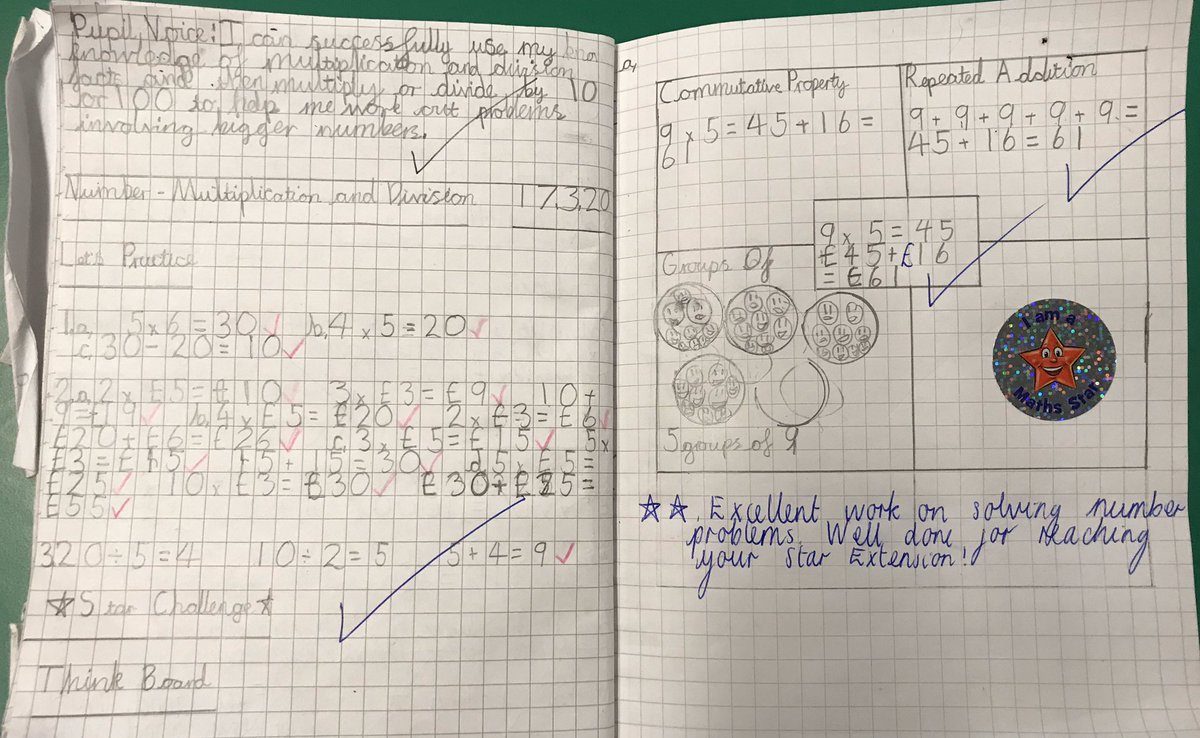 Pupil Voice: I can successfully use my kno
knowledge of multiplication and division
facts and then multiply or divide by 10
or 100 to help me work out problems
involving bigger numbers.
Number - Multiplication and Division 17.3.20
Let's Practice
1.a. 5 x 6 = 30 b. 4 x 5 = 20
c. 30 - 20 = 10
2.a. 2 x £5 = £10 3 x £3 = £9 10 +
9 = £19 b. 4 x £5 = £20 2 x £3 = £6
£20 + £6 = £26 c. 3 x £5 = £15 5 x
£3 = £15 £5 + 15 = 30 d. 5 x £5 =
£25 10 x £3 = £30 £30 + £25 =
£55
3. 20 ÷ 5 = 4 10 ÷ 2 = 5 5 + 4 = 9
Star Challenge
Think Board
Commutative Property
9 x 5 = 45 + 16 =
61
Repeated Addition
9 + 9 + 9 + 9 + 9 =
45 + 16 = 61
9 x 5 = 45
£45 + £16
= £61
Groups Of
5 groups of 9
I am a
Maths Star
Excellent work on solving number
problems. Well done for reaching
your Star Extension!